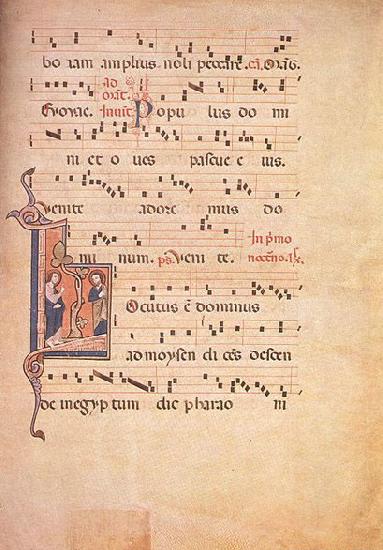 bo iam amplius noli peccare. ca. Orõ.
ad orat.
Evovae. Invit. Popu lus do mi
ni et o ves pascue e ius.
Venite adore mus do
In prmo
mi num. ps. Veni te. nocno.
Locutus ē dominus
ad moysen di cēs descen
de in egyp tum dic pharao ni